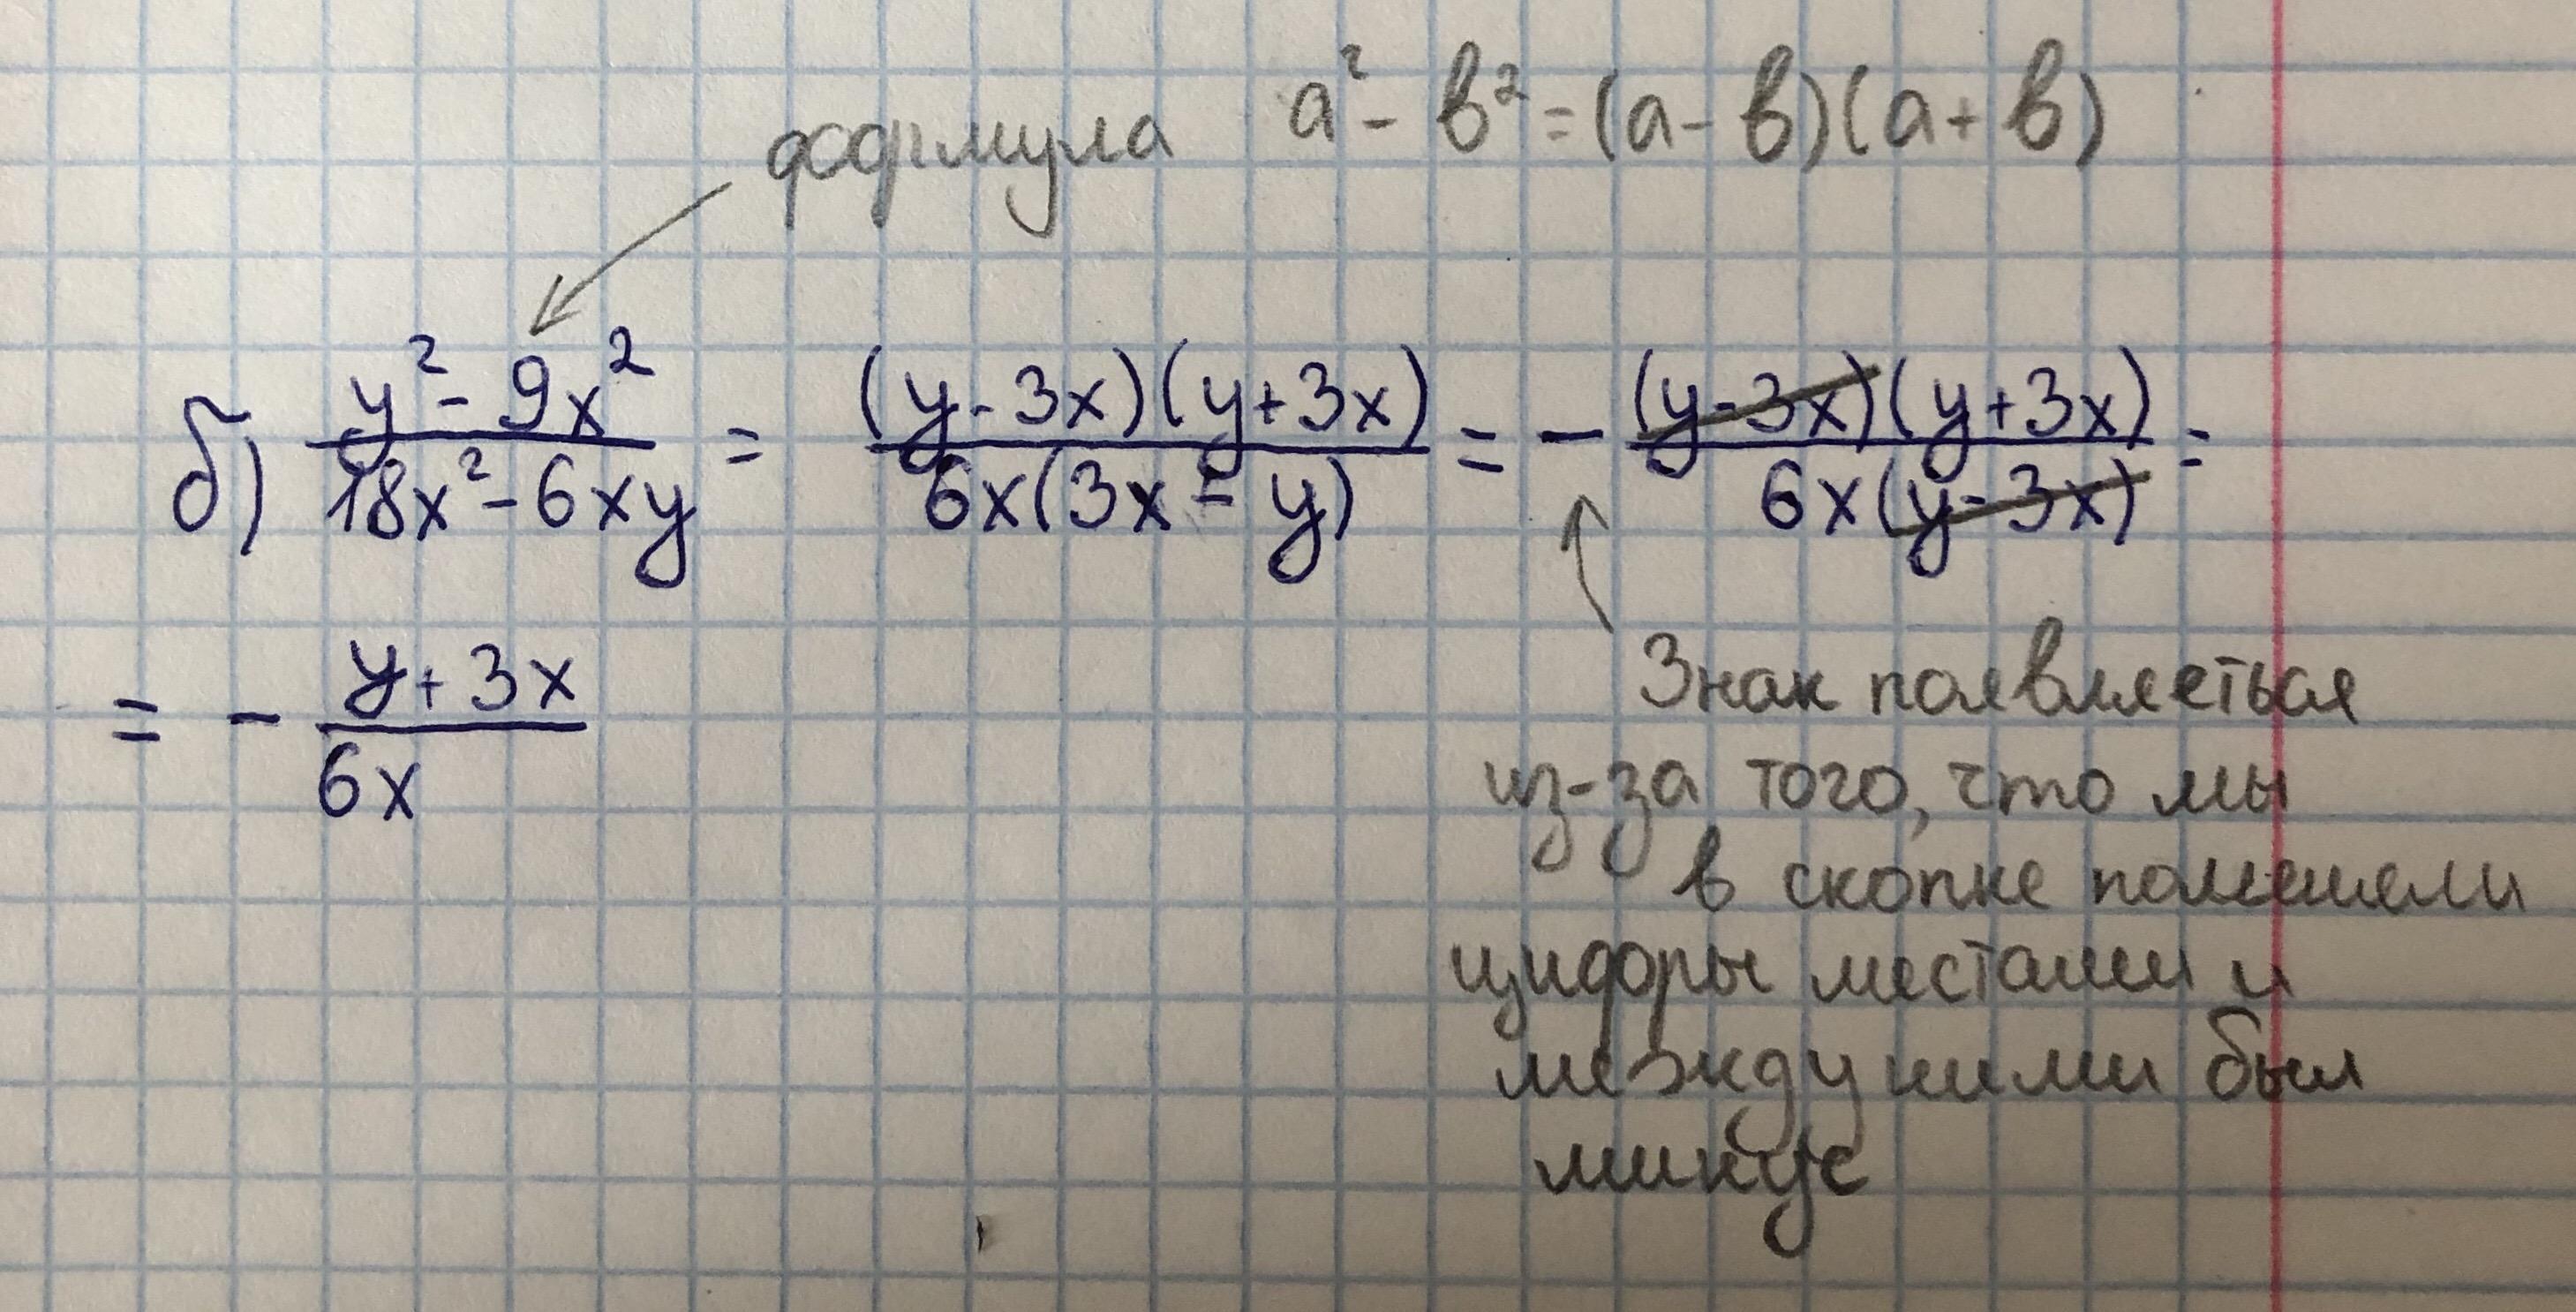 формула a² - b² = (a - b)(a + b)
б) (y² - 9x²)/(18x² - 6xy) = ((y - 3x)(y + 3x))/(6x(3x - y)) = - ((y - 3x)(y + 3x))/(6x(y - 3x)) =
= - (y + 3x)/(6x)
Знак появляеться
из-за того, что мы
в скопке поменяли
цифры местами и
между ними был
минус